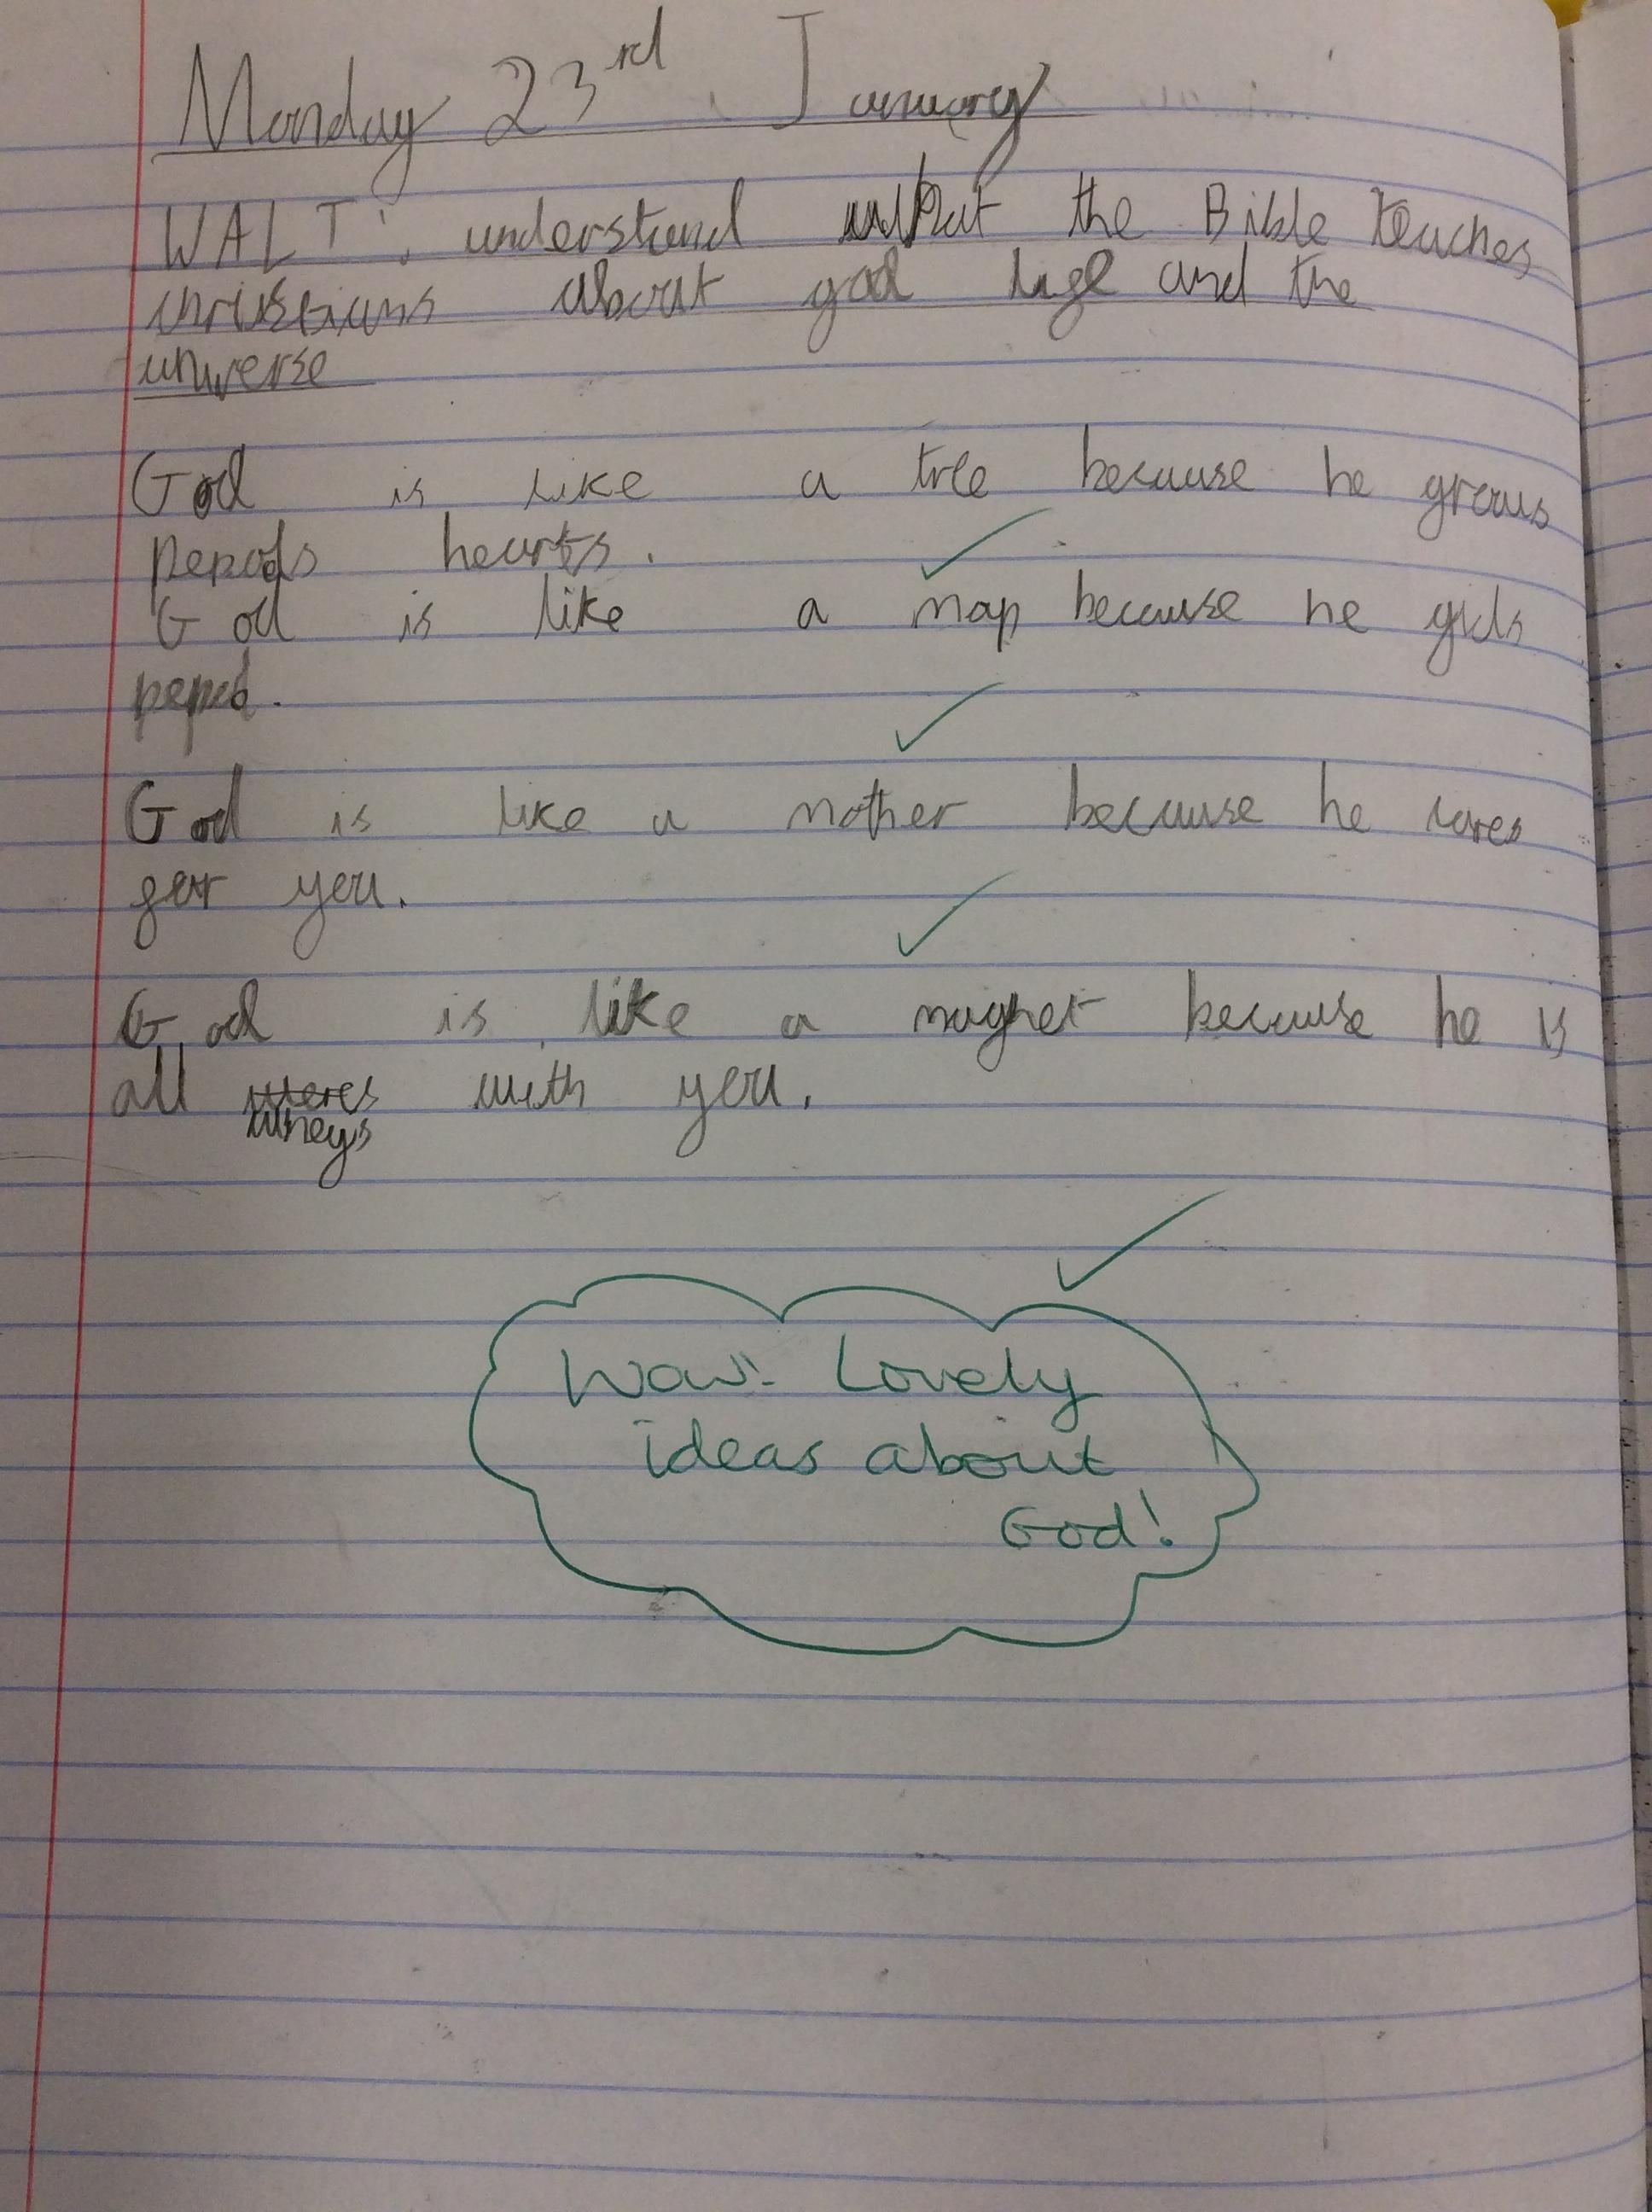 Monday 23rd January
WALT: understand what the Bible teaches
christians about god life and the
universe
God is like a tree because he grows
hearts.
God is like a map because he gids
God is like a mother because he cares
for you.
God is like a magnet because he is
all wheys with you.
Wow! Lovely
ideas about
God!